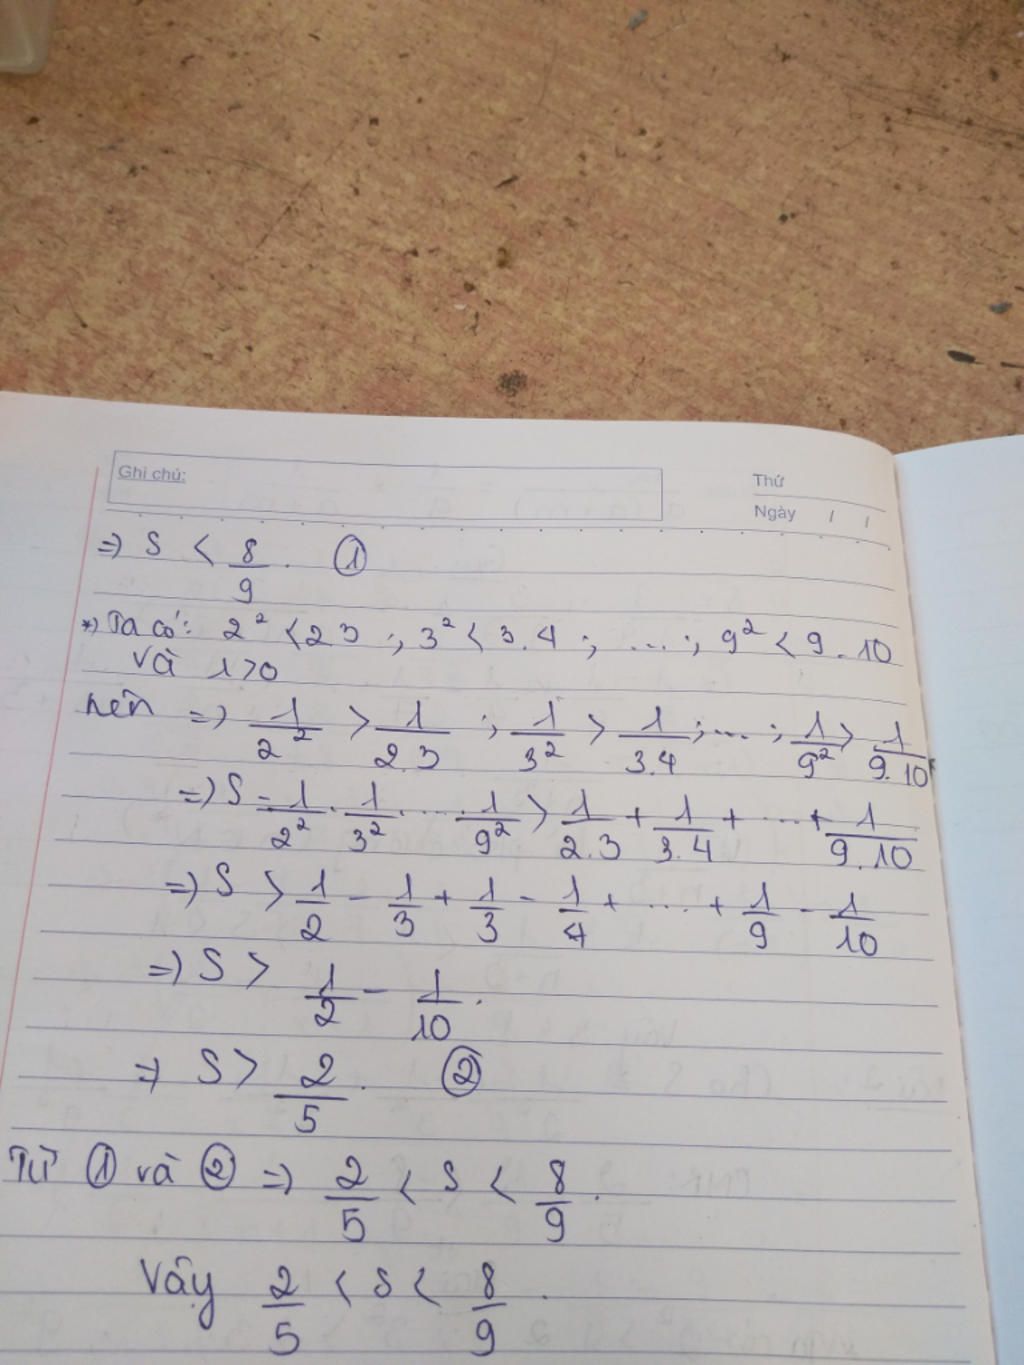 Ghi chú:
Thứ
Ngày / /
=) S < 8/9. ①
*) Ta có: 2² < 2 3 ; 3² < 3.4 ; ... ; 9² < 9.10
và 1>0
nên =) 1/2² > 1/2.3 ; 1/3² > 1/3.4 ; ... ; 1/9² > 1/9.10
=) S = 1/2² . 1/3² ... 1/9² > 1/2.3 + 1/3.4 + ... + 1/9.10
=) S > 1/2 - 1/3 + 1/3 - 1/4 + ... + 1/9 - 1/10
=) S > 1/2 - 1/10.
=) S > 2/5. ②
Từ ① và ② =) 2/5 < S < 8/9.
Vậy 2/5 < S < 8/9.